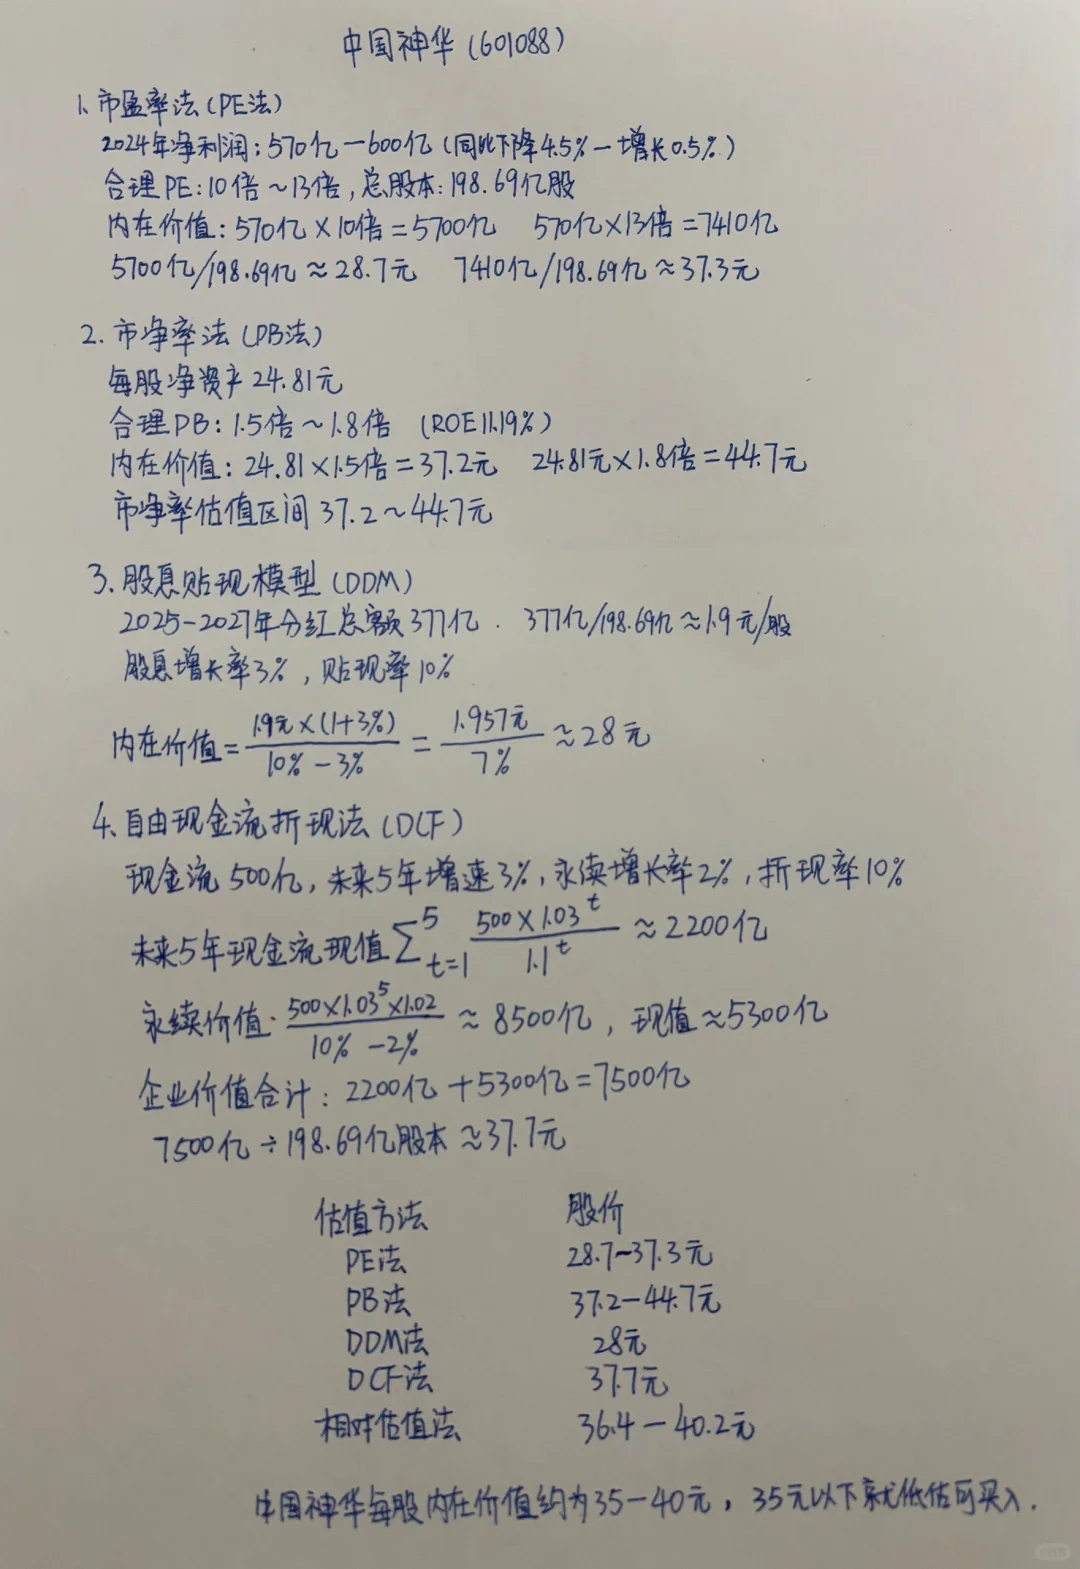 中国神华(601088)
1. 市盈率法(PE法)
2024年净利润:570亿—600亿(同比下降4.5%—增长0.5%)
合理PE:10倍~13倍,总股本:198.69亿股
内在价值:570亿×10倍=5700亿 570亿×13倍=7410亿
5700亿/198.69亿≈28.7元 7410亿/198.69亿≈37.3元
2. 市净率法(PB法)
每股净资产24.81元
合理PB:1.5倍~1.8倍 (ROE11.19%)
内在价值:24.81×1.5倍=37.2元 24.81元×1.8倍=44.7元
市净率估值区间37.2~44.7元
3. 股息贴现模型(DDM)
2025-2027年分红总额377亿. 377亿/198.69亿≈1.9元/股
股息增长率3%,贴现率10%
内在价值=1.9元×(1+3%)/10%-3%=1.957元/7%≈28元
4、自由现金流折现法(DCF)
现金流500亿,未来5年增速3%,永续增长率2%,折现率10%
未来5年现金流现值∑5t=1 500×1.03^t/1.1^t≈2200亿
永续价值·500×1.03^5×1.02/10%-2%≈8500亿,现值≈5300亿
企业价值合计:2200亿+5300亿=7500亿
7500亿÷198.69亿股本≈37.7元
估值方法 股价
PE法 28.7~37.3元
PB法 37.2—44.7元
DDM法 28元
DCF法 37.7元
相对估值法 36.4—40.2元
中国神华每股内在价值约为35-40元,35元以下就低估可买入.